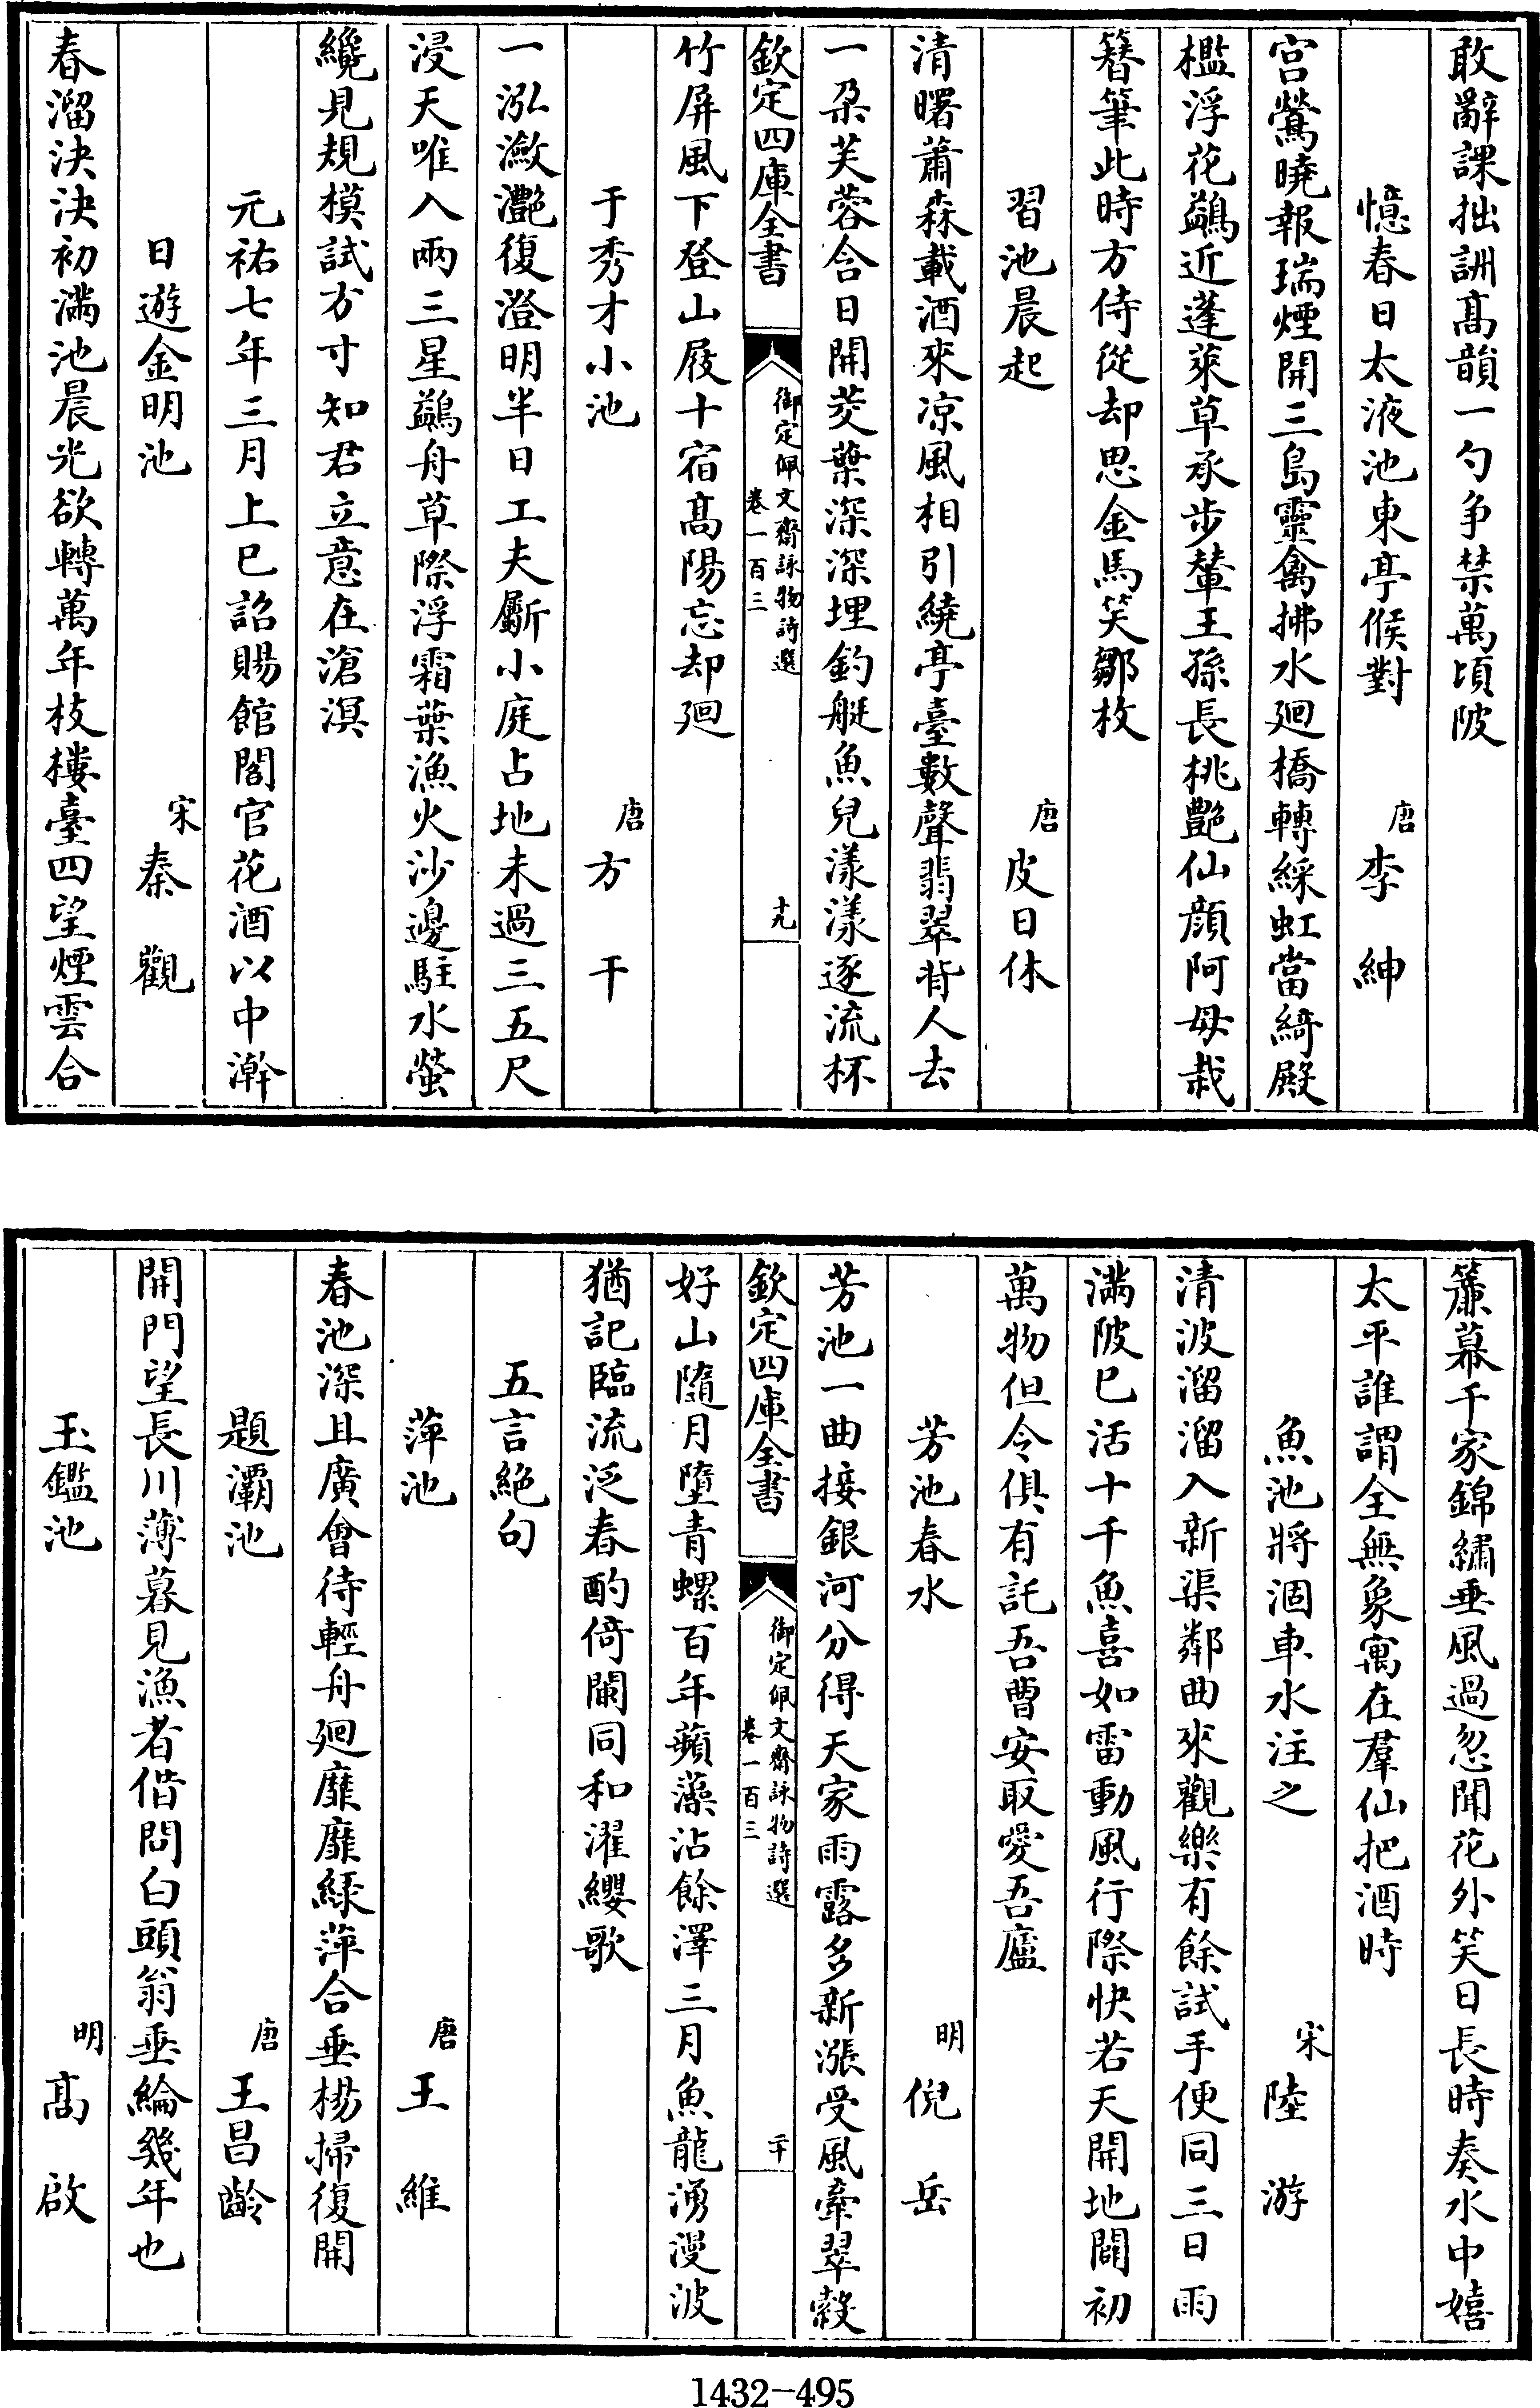 敢辭課拙詶高韻一勺争禁萬頃陂
憶春日太液池東亭候對 唐 李紳
宫鶯曉報瑞煙開三島靈禽拂水廻橋轉綵虹當綺殿
檻浮花鷁近蓬萊草承步輦王孫長桃艷仙顔阿母栽
簪筆此時方侍從却思金馬笑鄒枚
習池晨起 唐 皮日休
清曙蕭森載酒來凉風相引繞亭臺數聲翡翠背人去
一朶芙蓉合日開茭葉深深埋釣艇魚兒漾漾逐流杯
欽定四庫全書 御定佩文齋詠物詩選 卷一百三 十九
竹屏風下登山屐十宿高陽忘却廻
于秀才小池 唐 方干
一泓瀲灔復澄明半日工夫斸小庭占地未過三五尺
浸天唯入兩三星鷁舟草際浮霜葉漁火沙邊駐水螢
纔見規模試方寸知君立意在滄溟
元祐七年三月上巳詔賜館閣官花酒以中澣
日遊金明池 宋 秦觀
春溜決決初滿池晨光欲轉萬年枝樓臺四望煙雲合
簾幕千家錦繡垂風過忽聞花外笑日長時奏水中嬉
太平誰謂全無象寓在羣仙把酒時
魚池將涸車水注之 宋 陸游
清波溜溜入新渠鄰曲來觀樂有餘試手便同三日雨
滿陂已活十千魚喜如雷動風行際快若天開地闢初
萬物但令俱有託吾曹安取愛吾廬
芳池春水 明 倪岳
芳池一曲接銀河分得天家雨露多新漲受風牽翠縠
欽定四庫全書 御定佩文齋詠物詩選 卷一百三 二十
好山隨月墮青螺百年蘋藻沾餘澤三月魚龍湧漫波
猶記臨流泛春酌倚闌同和濯纓歌
五言絶句
萍池 唐 王維
春池深且廣會待輕舟廻靡靡緑萍合垂楊掃復開
題灞池 唐 王昌齡
開門望長川薄暮見漁者借問白頭翁垂綸幾年也
玉鑑池 明 高啟
1432-495